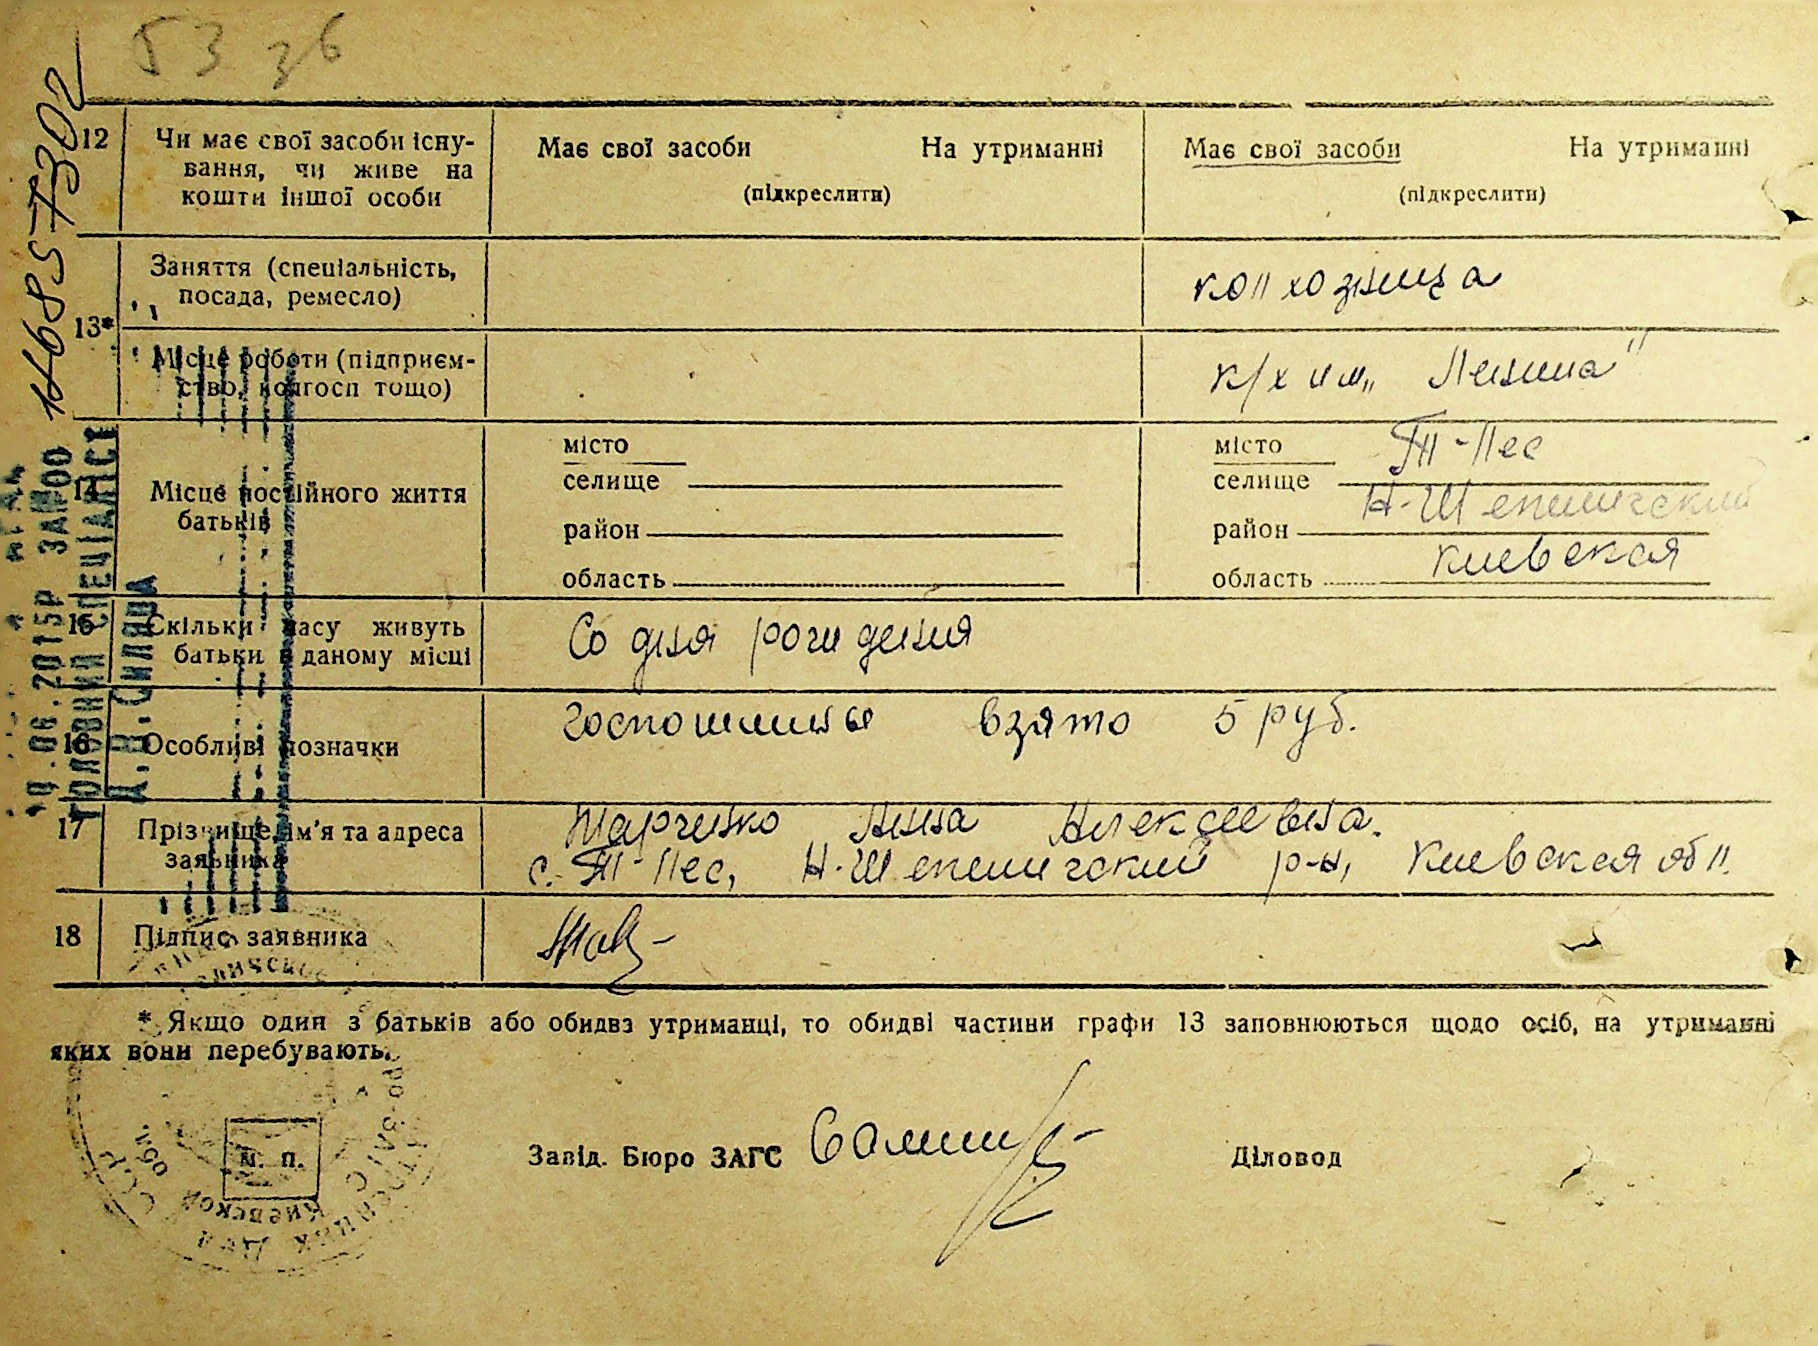 53 зб
12 Чи має свої засоби існу-
вання, чи живе на
кошти іншої особи
Має свої засоби На утриманні
(підкреслити)
Має свої засоби На утриманні
(підкреслити)
13* Заняття (спеціальність,
посада, ремесло)
колхозница
Місце роботи (підприєм-
ство, колгосп тощо)
к/х им „Ленина"
14 Місце постійного життя
батьків
місто
селище
район
область
місто
селище Пп-Лес
район Н-Шепеличский
область Киевская
15 Скільки часу живуть
батьки в даному місці
Со дня рождения
16 Особливі позначки
госпошлины взято 5 руб.
17 Прізвище, ім'я та адреса
заявника
Анна Алексеевна.
Н-Шепеличский р-н, Киевская обл.
18 Підпис заявника
* Якщо один з батьків або обидва утриманці, то обидві частини графи 13 заповнюються щодо осіб, на утриманні
яких вони перебувають.
М. П.
Завід. Бюро ЗАГС
Діловод
06.2015р
ГОЛОВНИЙ СПЕЦІАЛІСТ
Киевской обл.